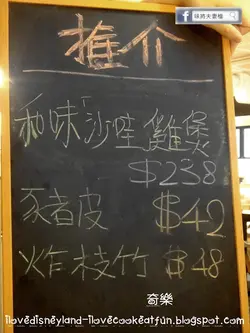 推介
和味「沙哇雞煲
$238
豕者皮 $42
炸枝竹 $48
奇樂
ilovedisneyland-ilovecookeatfun.blogspot.com